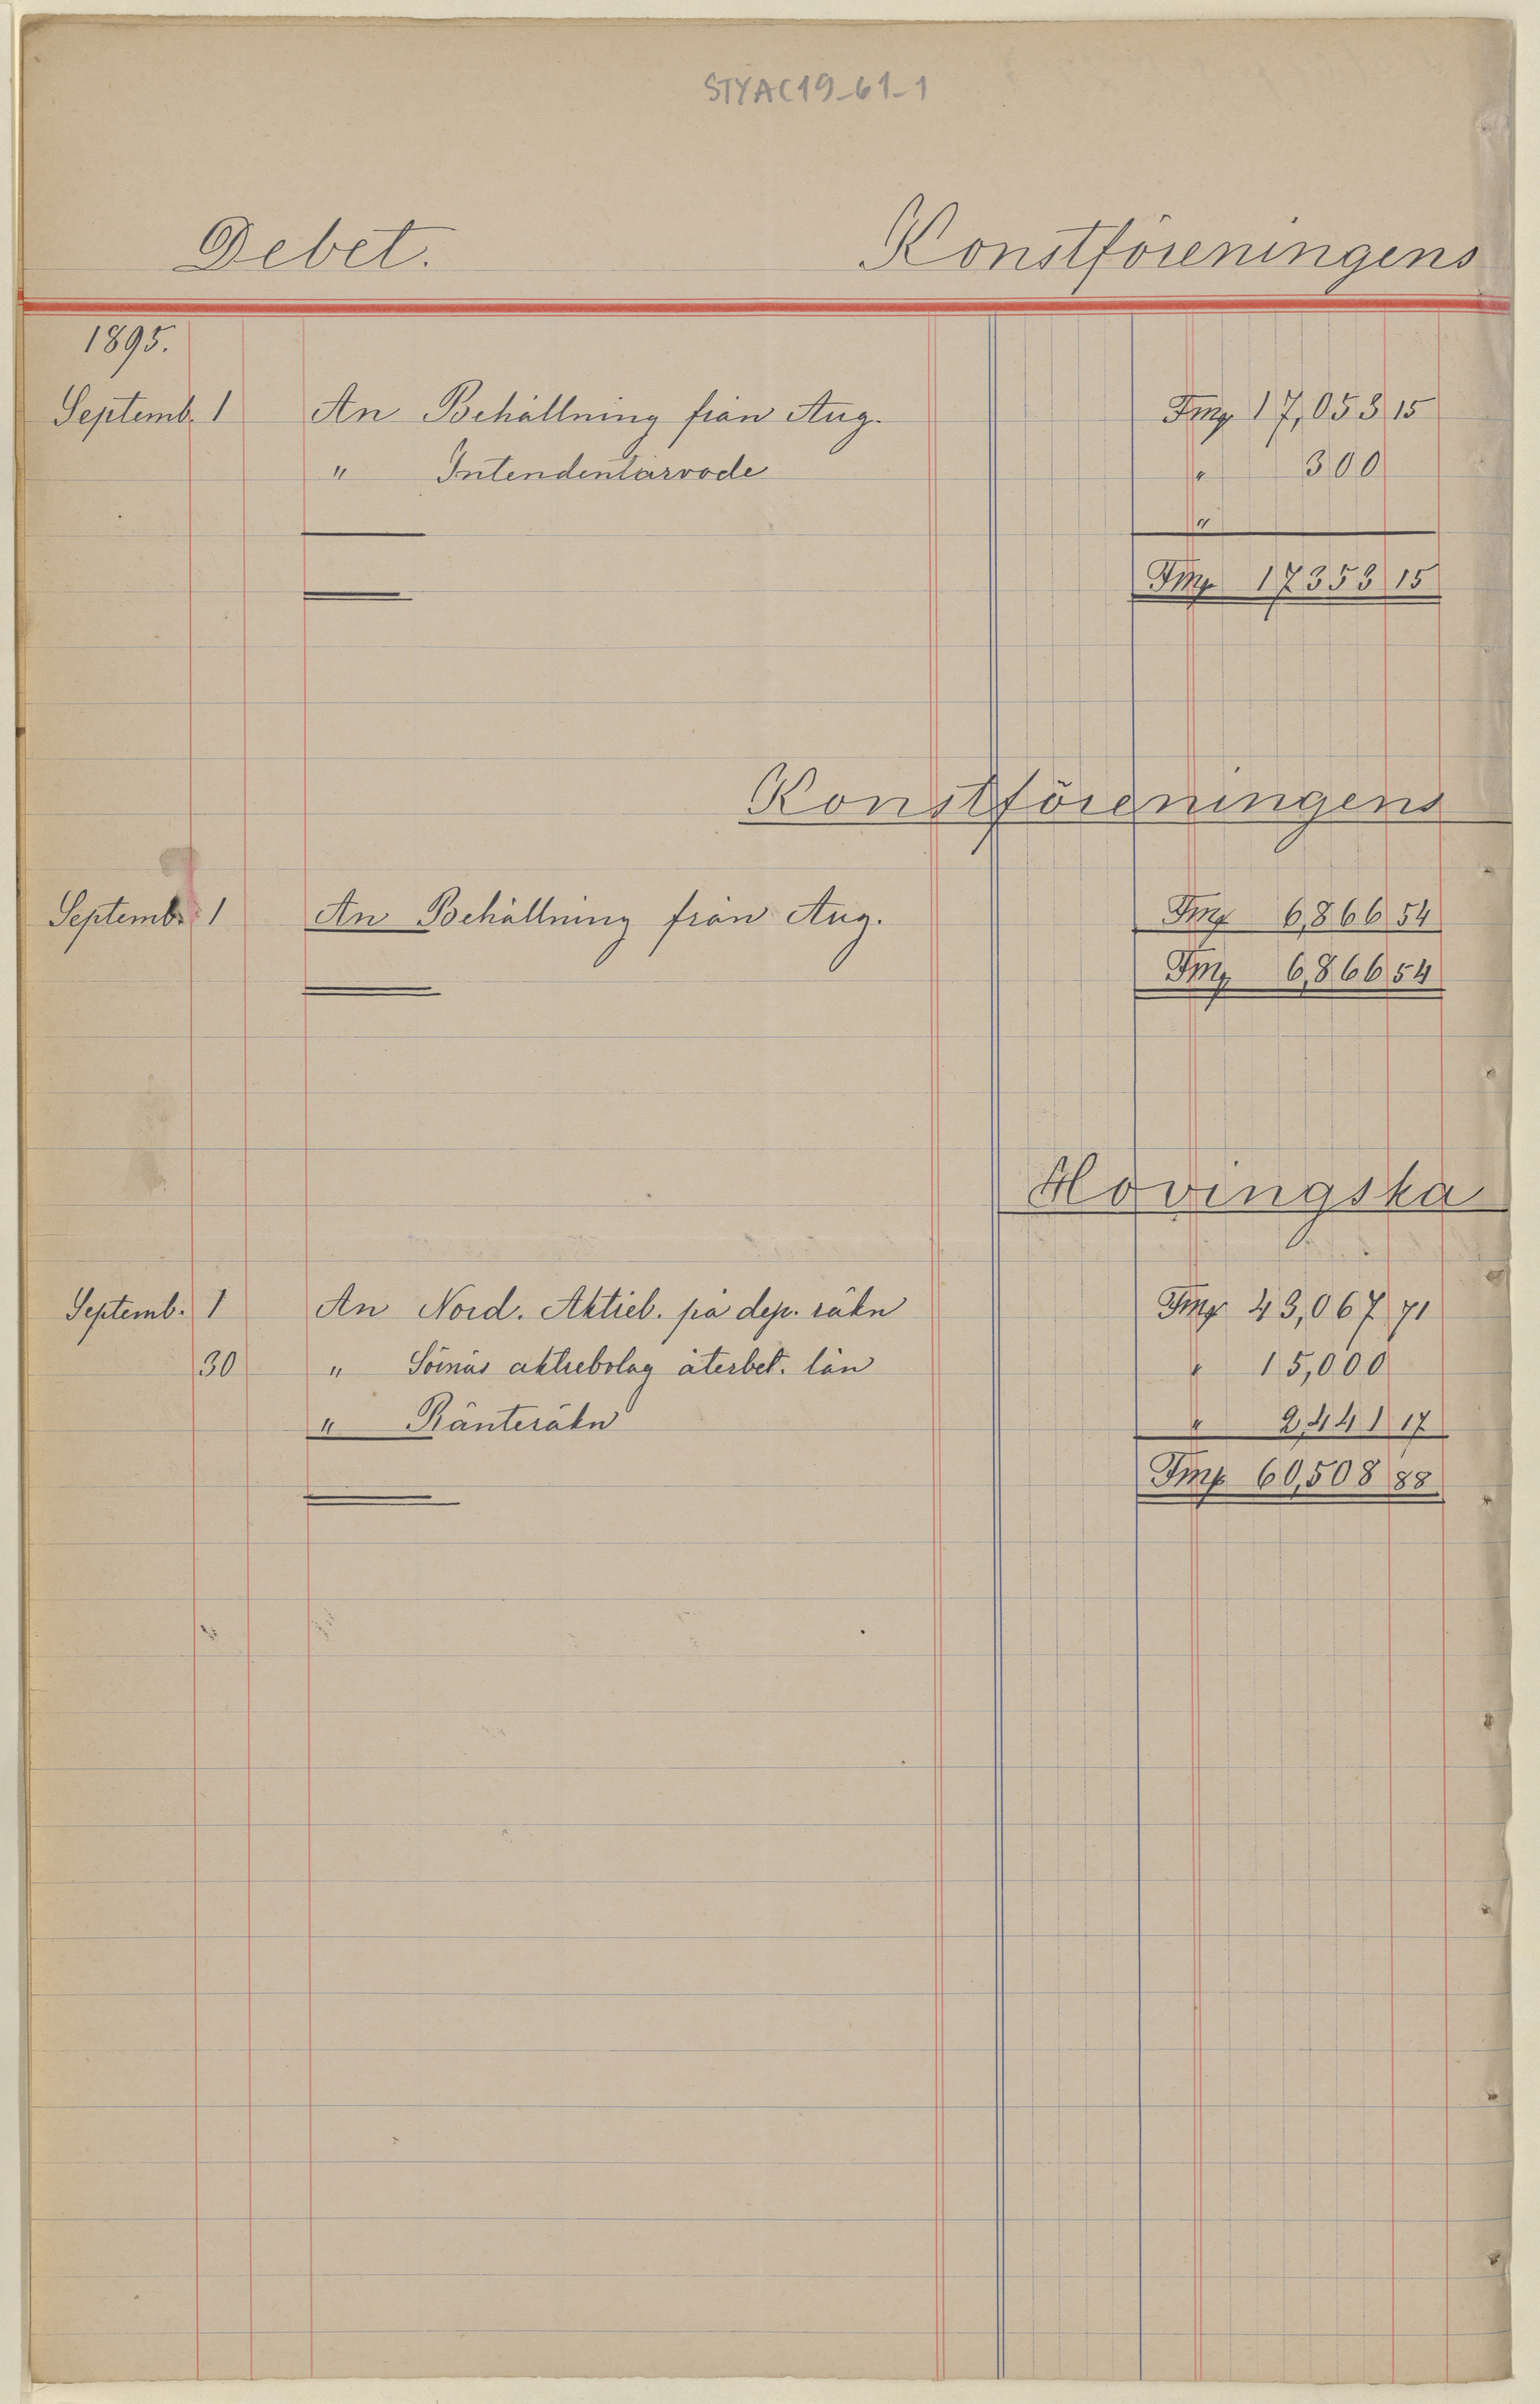 STYAC19-61-1
Debet. Konstföreningens
1895.
Septemb. 1 An Behållning från Aug. Fmk 17,053 15
" Intendentarvode " 300
"
Fmk 17353 15
Konstföreningens
Septemb. 1 An Behållning från Aug. Fmk 6,866 54
Fmk 6,866 54
Hovingska
Septemb. 1 An Nord. Aktieb. på dep. räkn Fmk 43,067 71
30 " Sörnäs aktiebolag återbet. lån " 15,000
" Ränteräkn " 2,441 17
Fmk 60,508 88